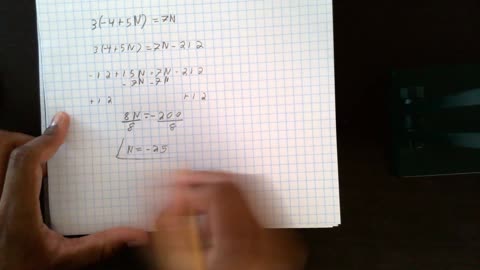 3(-4+5N)=7N
3(-4+5N)=7N-212
-12+15N=7N-212
-7N -7N
+12 +12
8N=-200
8 8
N=-25